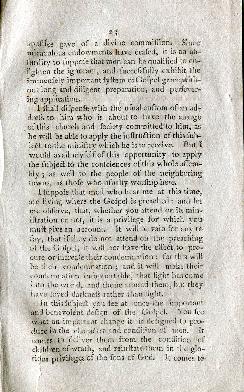 23
qualifies gave of a divine commission. Since
miraculous endowments have ceased, it is an ab-
surdity to suppose that men can be qualified to en-
lighten the ignorant, and successfully exhibit the
immensely important system of Gospel grace, with-
out long and diligent preparation, and persever-
ing application.
I shall dispense with the usual custom of an ad-
dress to him who is about to take the charge
of this church and society committed to him, as
he will be able to apply the instruction of this sub-
ject to the ministry which he is to receive. But I
would avail myself of this opportunity to apply
the subject to the consciences of this whole assem-
bly; as well to the people of the neighboring
towns, as those who usually worship here.
I suppose that most who hear me at this time,
are living where the Gospel is preached: and let
me observe, that, whether you attend on its min-
istration or not, it is a privilege for which you
must give an account. It will be vain for any to
say, that if they do not attend on the preaching
of the Gospel, it will not have the effect to pro-
cure or increase their condemnation: for this will
be their condemnation; and it will make their
condemnation insupportable, that light has come
into the world, and shone around them, but they
have loved darkness rather than light.
In this subject you see at once the important
and benevolent design of the Gospel. You see
what an important change it is designed to pro-
duce in the character and condition of men. It
comes to deliver them from the condition of
children of wrath, and reinstate them in the glo-
rious privileges of the sons of God. It comes to